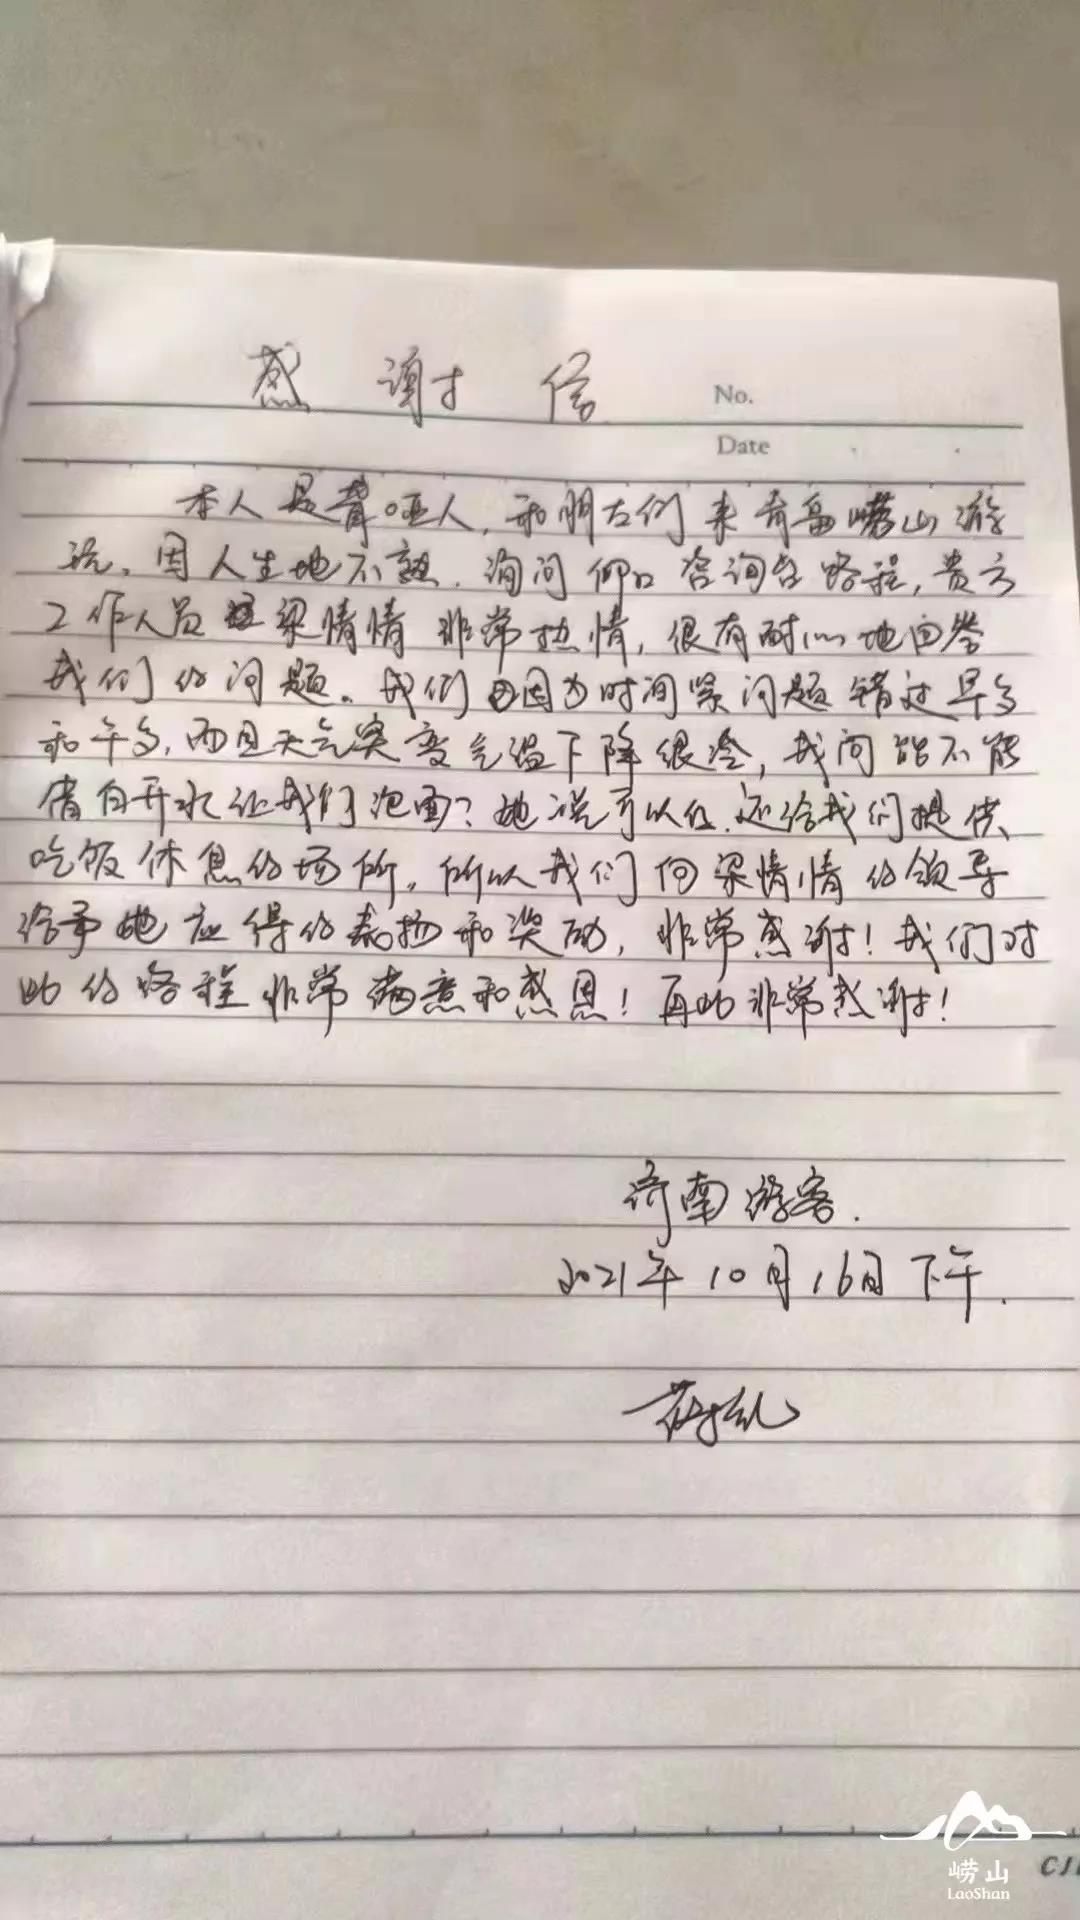 感谢信
No.
Date
本人是聋哑人,和朋友们来青岛崂山游
玩。因人生地不熟.询问仰口咨询台路程,贵方
工作人员梁情情非常热情,很有耐心地回答
我们的问题。我们因为时间紧问题错过早歺
和午歺,而且天气突变气温下降很冷,我问能不能
借白开水让我们泡面?她说可以的.还给我们提供
吃饭休息的场所,所以我们向梁情情的领导
给予她应得的表扬和奖励,非常感谢!我们对
此的路程非常满意和感恩!再此非常感谢!
济南游客.
2021年10月16日下午.
崂山
LaoShan